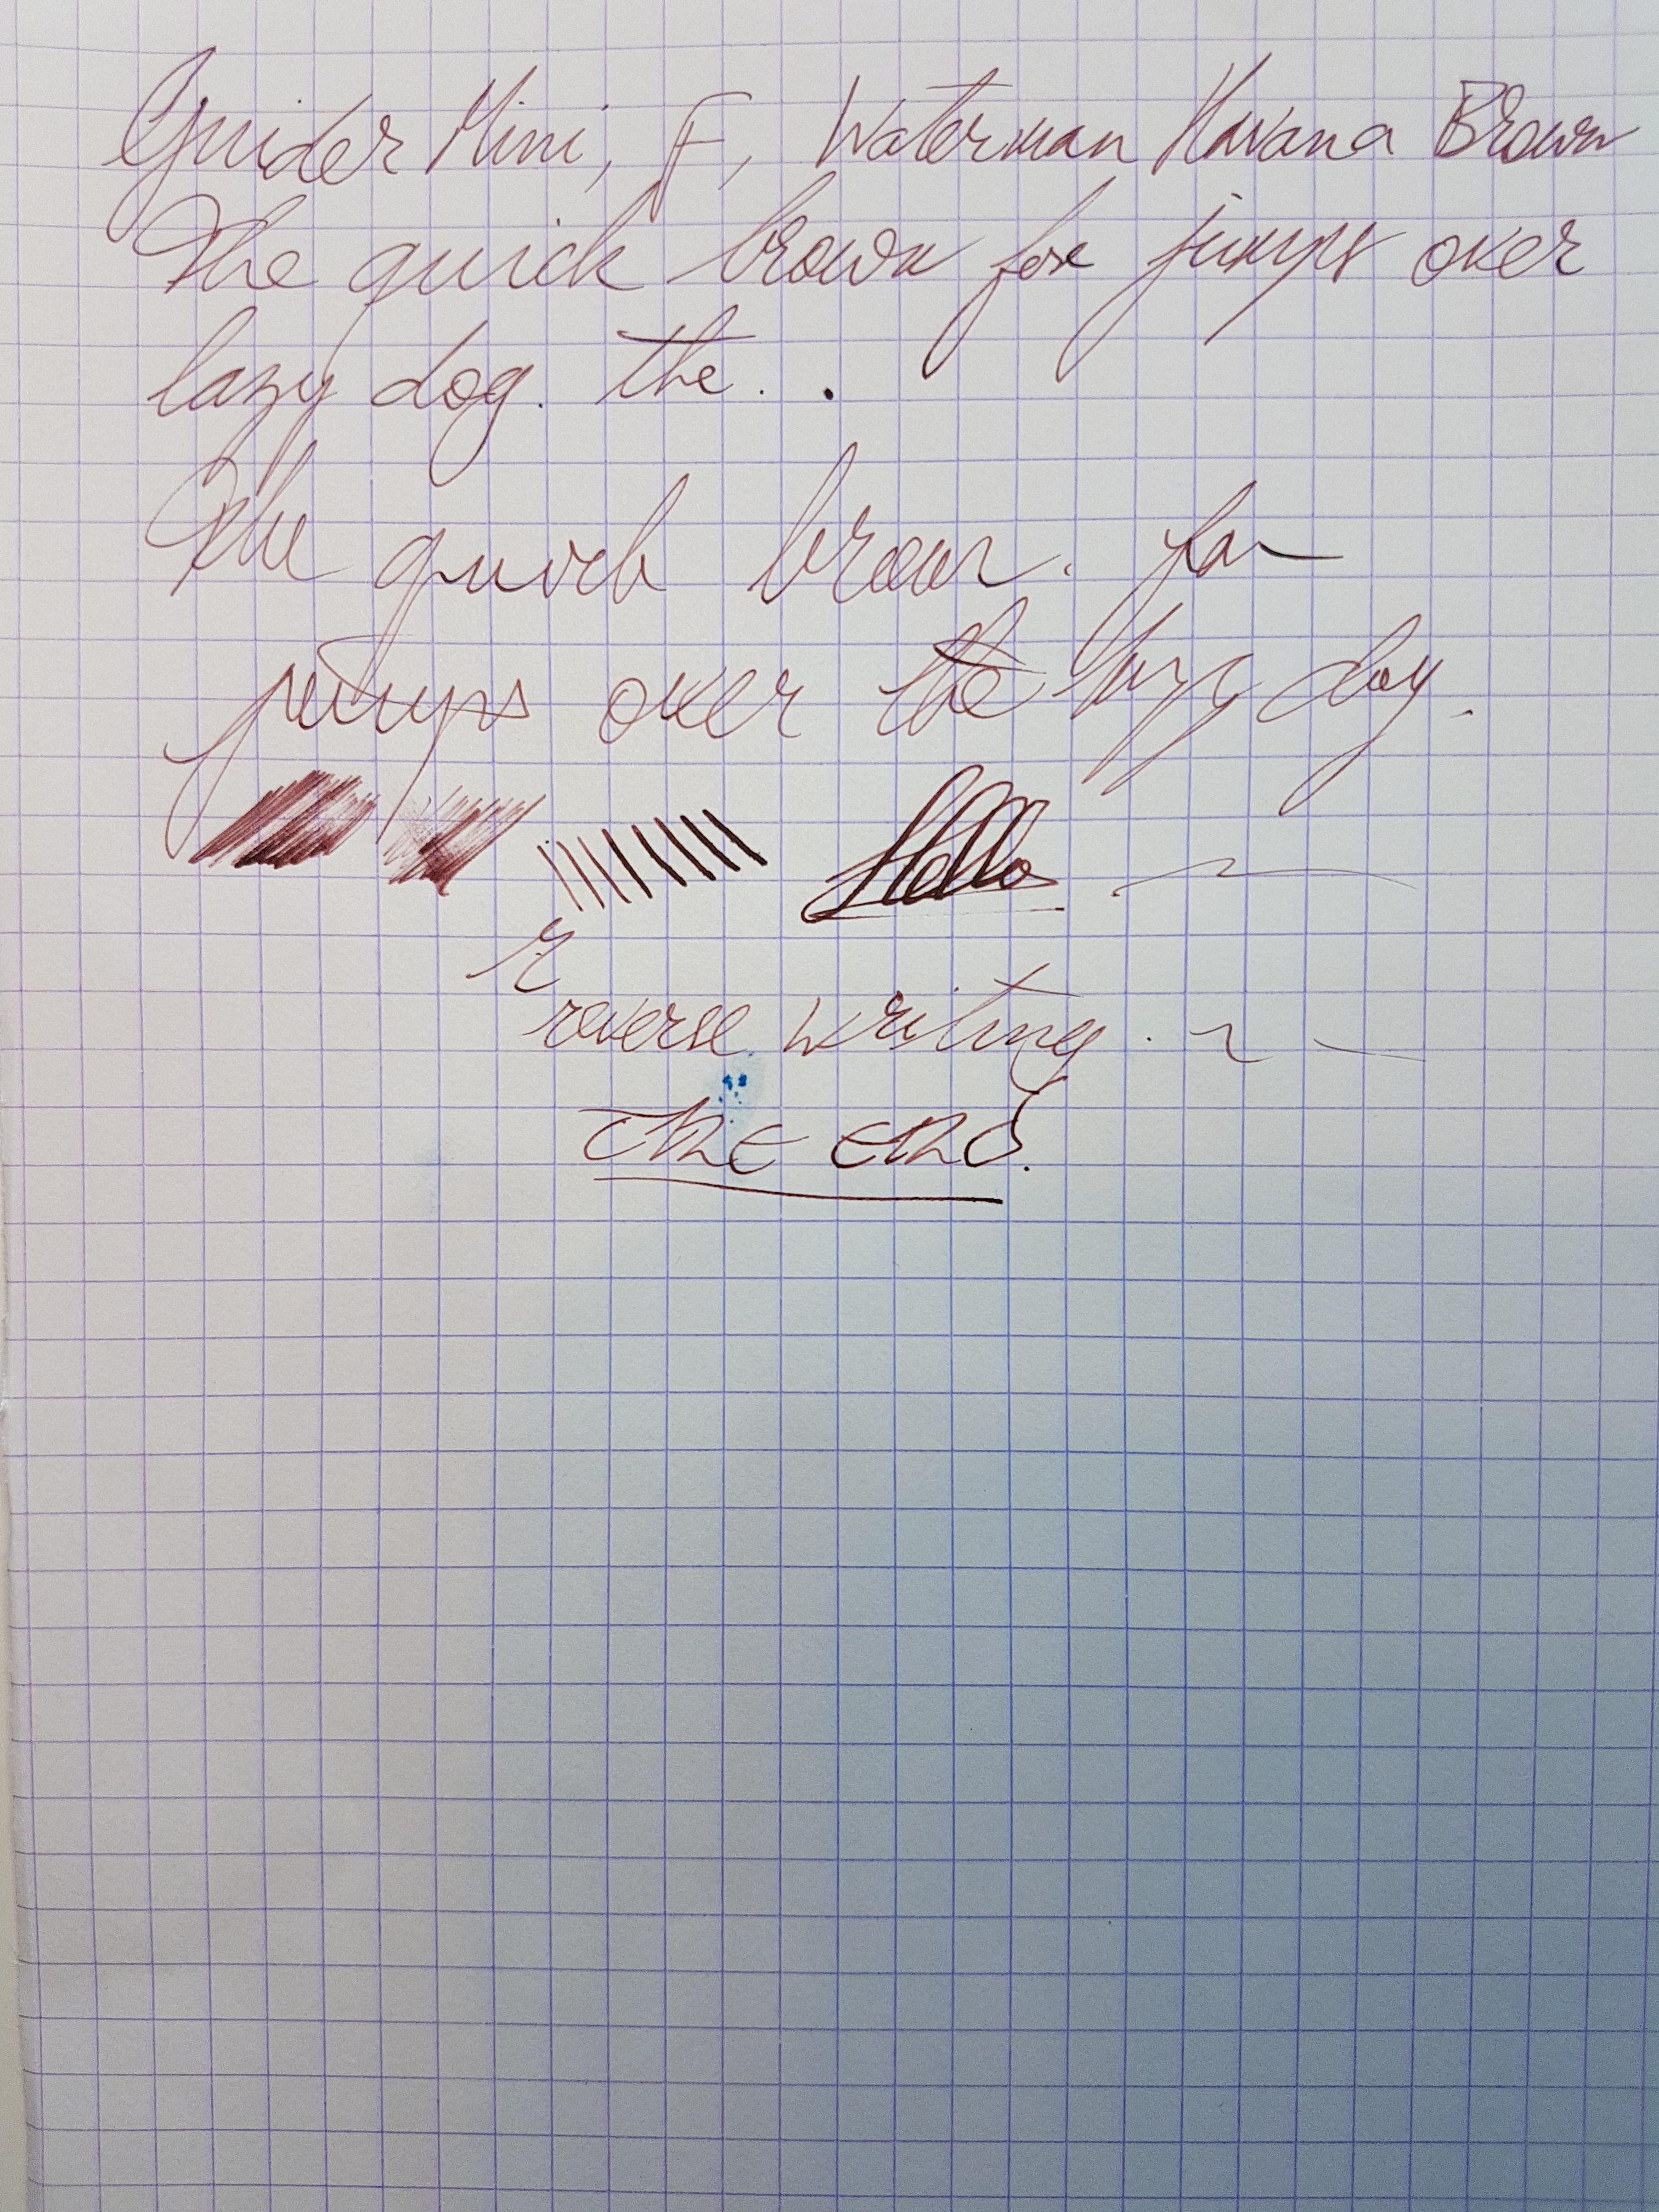 Guider Mini, F, Waterman Havana Brown
The quick brown fox jumps over
lazy dog. the . .
The quick brown. fox
jumps over the lazy dog.
Hello
r
reverse writing.
the end.